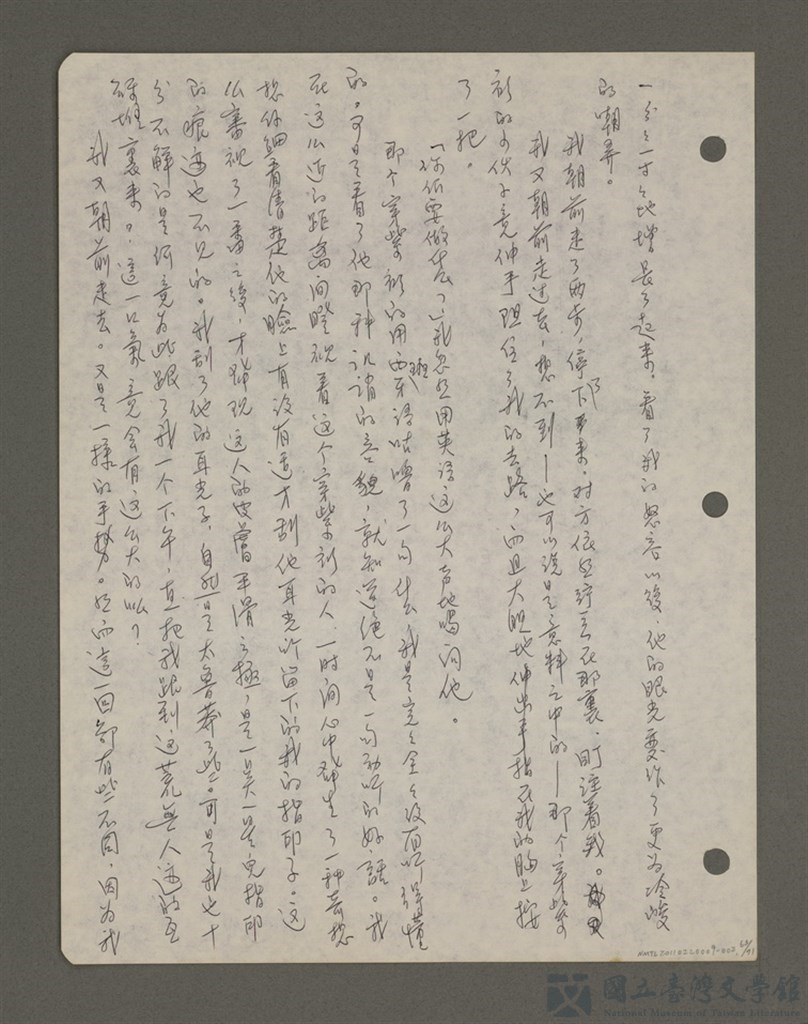 一分一寸地增長了起來。看了我的怒容以後，他的眼光變作了更为冷峻
的嘲弄。
我朝前走了兩步，停下來。对方依然站立在那裏，盯注着我。
我又朝前走过去，想不到—也可以说是意料之中的—那个穿紫
衫的方伙子竟伸手阻住了我的去路，而且大胆地伸出手指在我的胸上按
了一把。
「你们要做什么？」我忽然用英语这么大声地喝问他。
那个穿紫衫的用西班牙语咕嚕了一句什么，我是完完全全没有听得懂
的。可是看了他那种讥誚的容貌，就知道絕不是一句动听的好話。我
在这么近的距离间瞪視着这个穿紫衫的人，一时间心中發生了一种
想仔細看清楚他的臉上有没有适才刮他耳光所留下的我的指印子。这
么審視了一番之後，才發現这人的皮膚平滑之極，是一臭一是兒指印
的痕迹也不見的。我刮了他的耳光子，自然是太魯莽了些。可是我也十
分不解的是何竟为此跟了我一个下午，直把我跟到这荒無人迹的瓦
砾堆裏来？這一口氣竟会有这么大的嗎？
我又朝前走去。又是一樣的手勢。然而這一回卻有些不同，因为我
NMTL20110260009-003
國立臺灣文學館
National Museum of Taiwan Literature